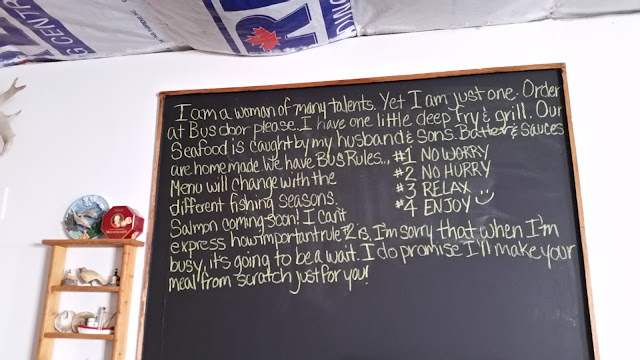 I am a woman of many talents. Yet I am just one. Order
at Bus door please. I have one little deep fry & grill. Our
Seafood is caught by my husband & sons. Batter & sauces
are home made. We have Bus Rules... #1 NO WORRY
Menu will change with the #2 NO HURRY
different fishing seasons. #3 RELAX
Salmon coming soon! I can't #4 ENJOY
express how important rule #2 is. I'm sorry that when I'm
busy, it's going to be a wait. I do promise I'll make your
meal from scratch just for you!